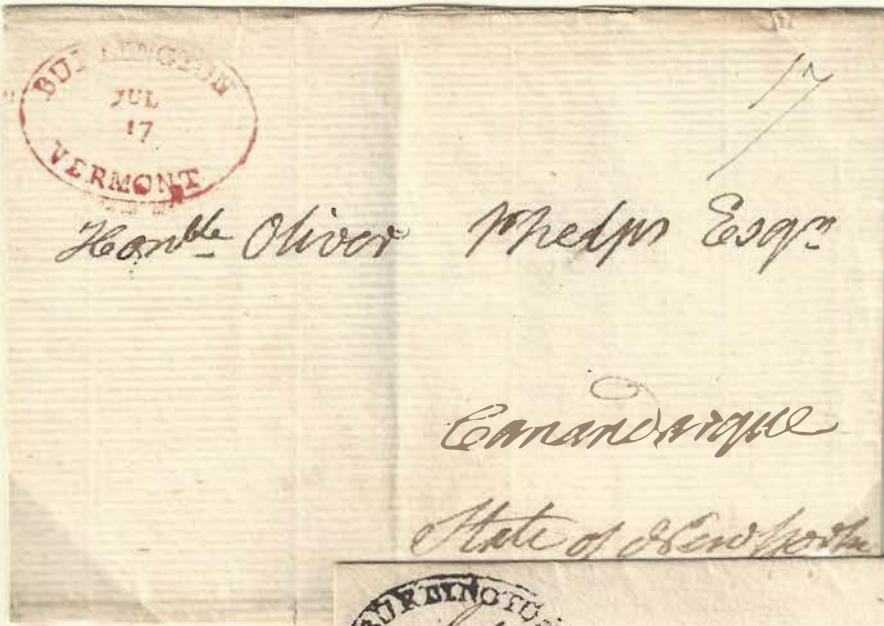 BURLINGTON
JUL
17
VERMONT
17
Honble Oliver Phelps Esqr
Canandaique
State of New York
BURLINGTON